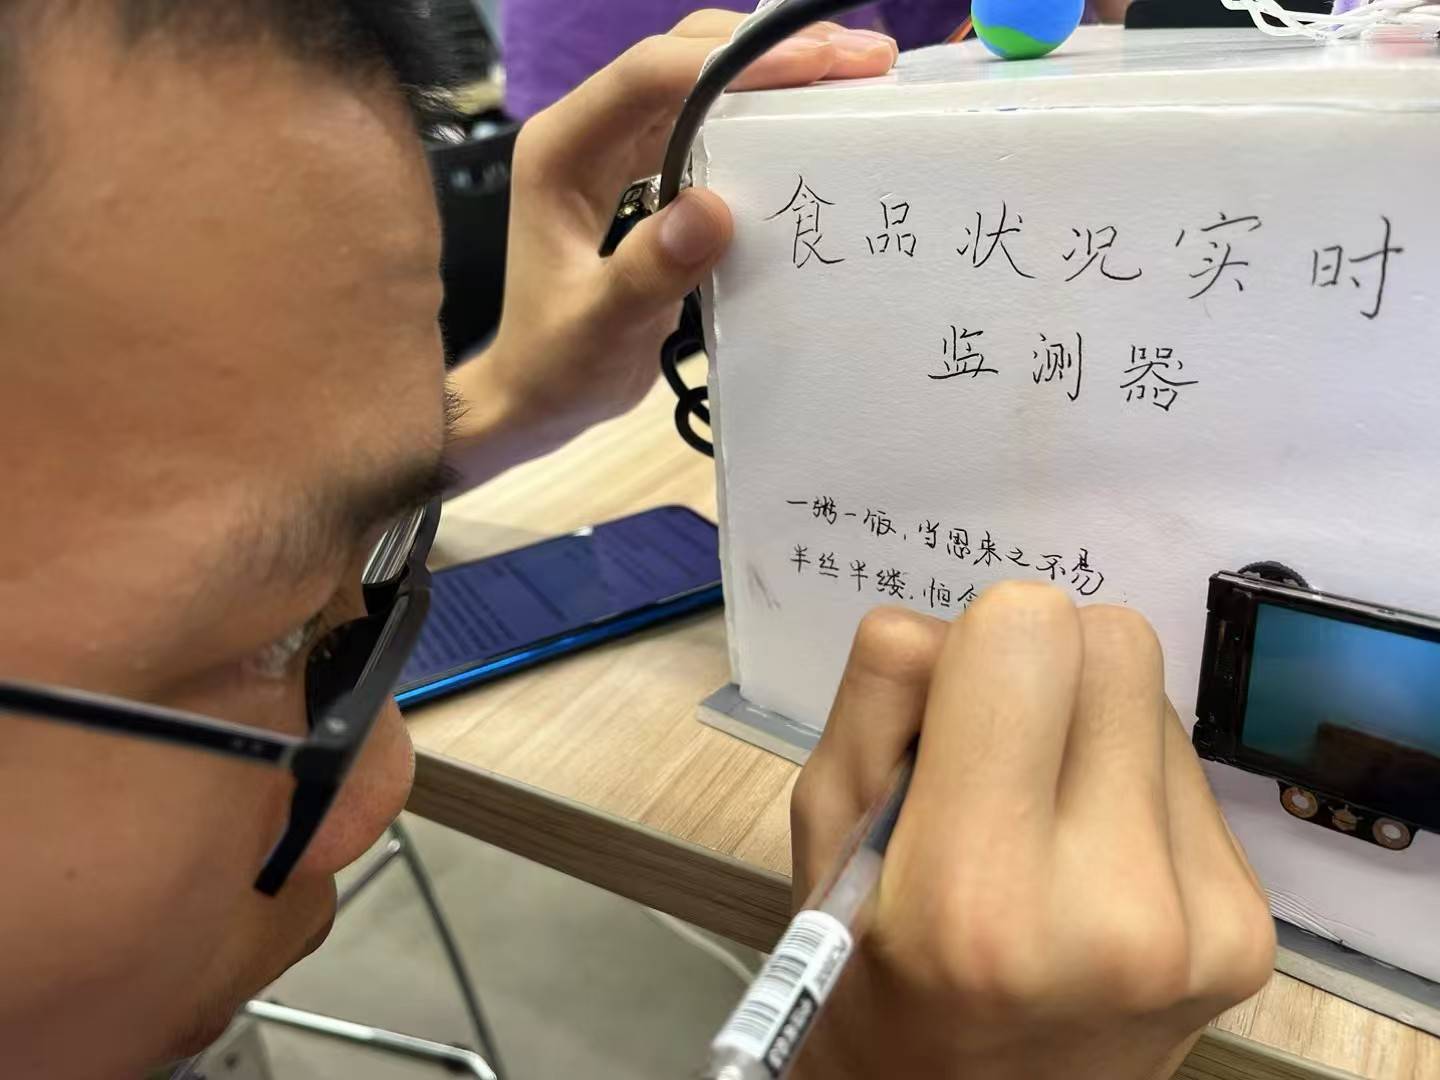 食品状况实时
监测器
一粥一饭，当思来之不易
半丝半缕，恒念